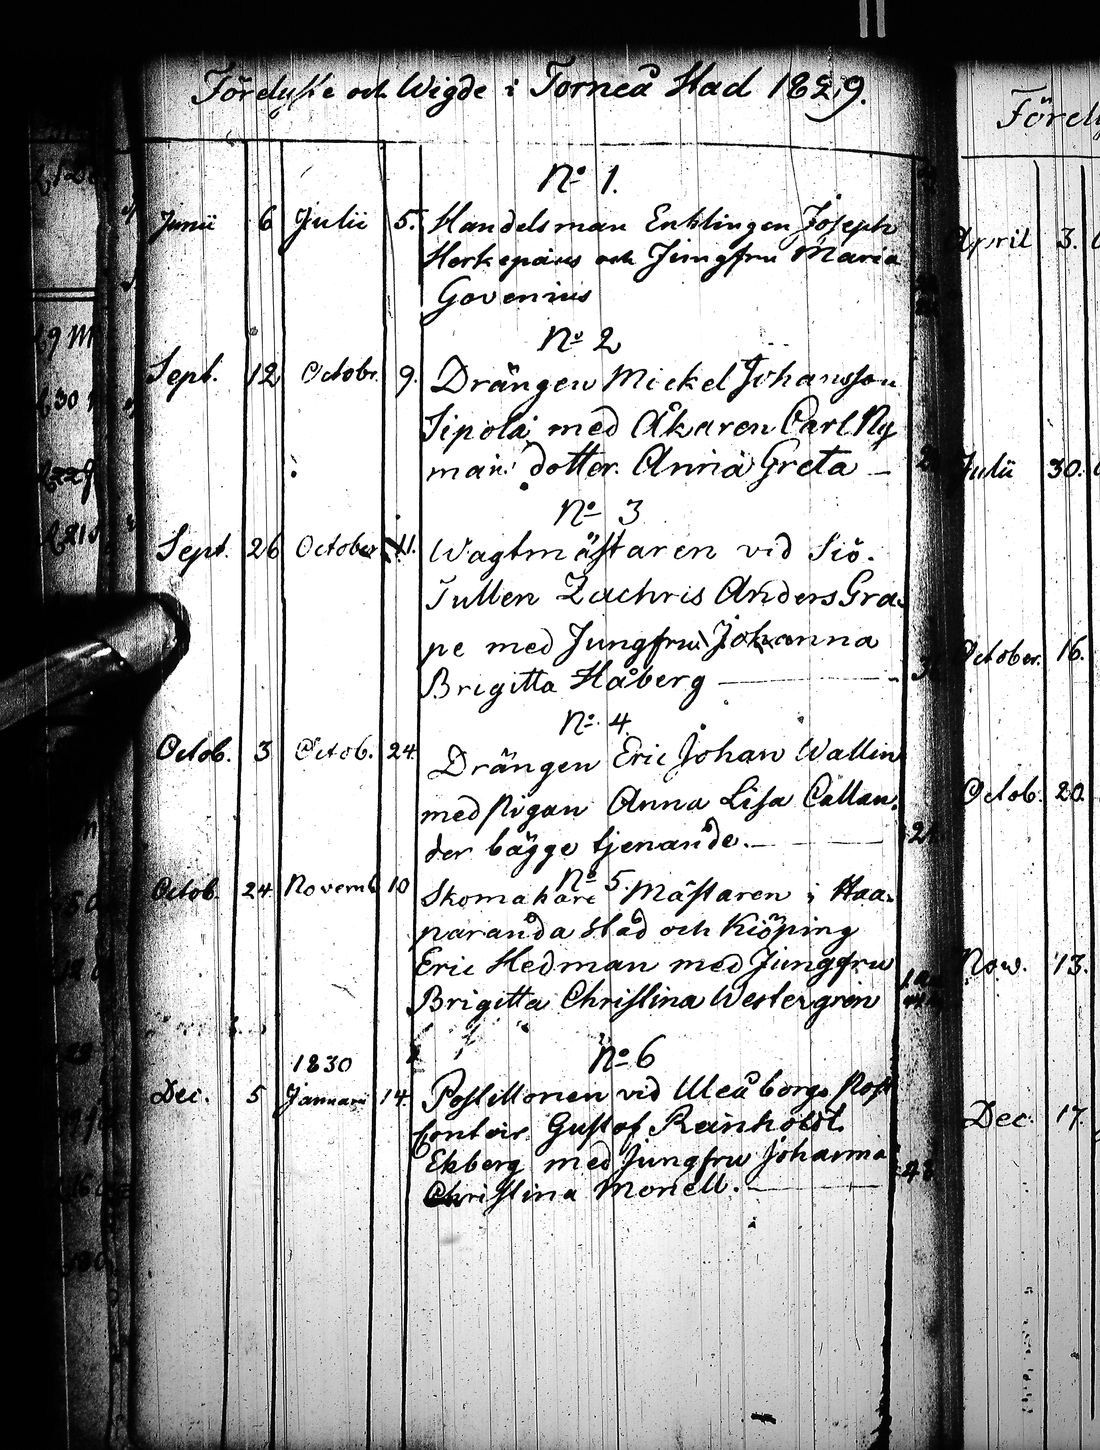 Förelyste och Wigde i Torneå Stad 1829.
No 1.
Junii 6 Julii 5. Handelsman Enklingen Joseph
Herkepæus och Jungfru Maria
Govenius
No 2
Sept. 12 Octobr. 9. Drängen Mickel Johansson
Sipola med Åkaren Carl Ny
man: dotter Anna Greta —
No 3
Sept. 26 October 11. Wagtmästaren vid Siö
Tullen Zachris Anders Gra-
pe med Jungfru Johanna
Brigitta Håberg —
No. 4.
Octob. 3 Octob. 24. Drängen Eric Johan Wallin
med Pigan Anna Lisa Callan-
der bägge tjenande. —
No 5.
Octob. 24 Novemb. 10 Skomakare Mästaren i Haa-
paranda Stad och Kiöping
Eric Hedman med Jungfru
Brigitta Christina Westergren
No 6
1830
Dec. 5 Januarii 14. Postillonen vid Uleåborgs Post
Contoir Gustaf Reinholdt
Ekberg med Jungfru Johanna
Christina Monell. —
April 3.
Julii 30.
October. 16.
Octob. 20.
Nov. 13.
Dec. 17.